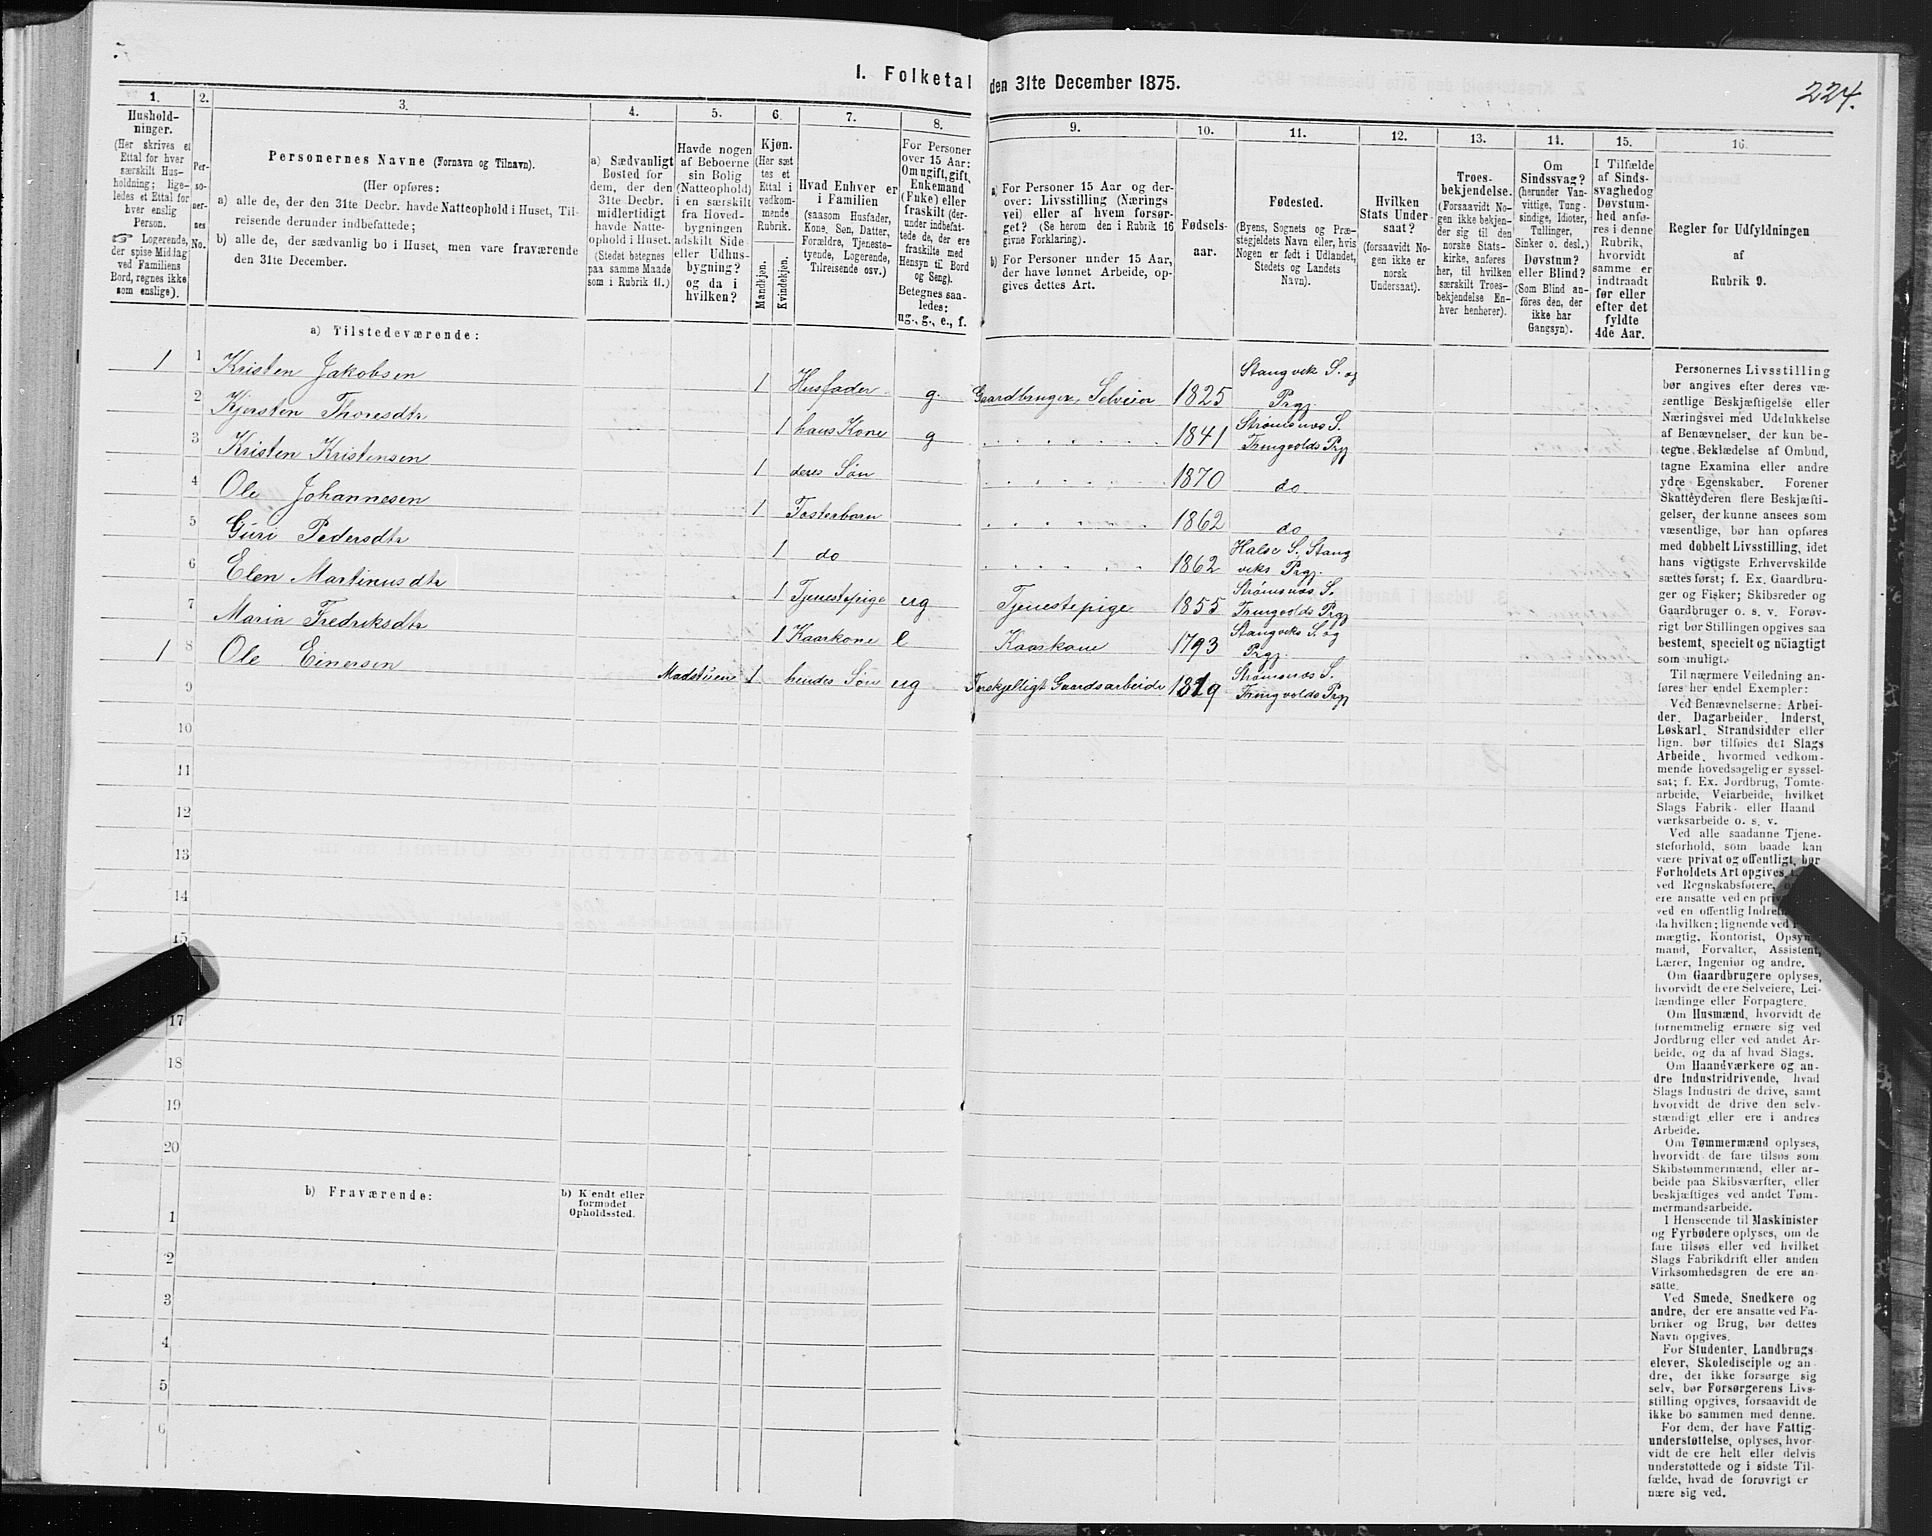 I. Folketal den 31te December 1875.
224.
1.
Hushold-
ninger.
(Her skrives et
Ettal for hver
særskilt Hus-
holdning; lige-
ledes et Ettal for
hver enslig
Person.
☞ Logerende,
der spise Middag
ved Familiens
Bord, regnes ikke
som enslige).
2.
Per-
so-
ner-
nes
No.
3.
Personernes Navne (Fornavn og Tilnavn).
(Her opføres:
a) alle de, der den 31te Decbr. havde Natteophold i Huset, Til-
reisende derunder indbefattede;
b) alle de, der sædvanlig bo i Huset, men vare fraværende
den 31te December.
4.
a) Sædvanligt
Bosted for
dem, der den
31te Decbr.
midlertidigt
havde Natte-
ophold i Huset.
(Stedet betegnes
paa samme Maade
som i Rubrik 11.)
5.
Havde nogen
af Beboerne
sin Bolig
(Natteophold)
i en særskilt
fra Hoved-
bygningen
adskilt Side
eller Udhus-
bygning?
og da i
hvilken?
6.
Kjøn.
(Her sæt
tes et
Ettal i
vedkom-
mende
Rubrik.
Mandkjøn.
Kvindekjøn.
7.
Hvad Enhver er
i Familien
(saasom Husfader,
Kone, Søn, Datter,
Forældre, Tjeneste-
tyende, Logerende,
Tilreisende osv.)
8.
For Personer
over 15 Aar:
Om ugift, gift,
Enkemand
(Enke) eller
fraskilt (der-
under indbefat-
tede de, der ere
fraskilte med
Hensyn til Bord
og Seng).
Betegnes saa-
ledes:
ug., g., e., f.
9.
a) For Personer 15 Aar og der-
over: Livsstilling (Nærings
vei) eller af hvem forsør-
get? (Se herom den i Rubrik 16
givne Forklaring).
b) For Personer under 15 Aar,
der have lønnet Arbeide, op-
gives dettes Art.
10.
Fødsels-
aar.
11.
Fødested.
(Byens, Sognets og Præ-
stegjeldets Navn eller, hvis
Nogen er født i Udlandet,
Stedets og Landets
Navn).
12.
Hvilken
Stats Under-
saat?
(forsaavidt No-
gen ikke er
norsk
Undersaat).
13.
Troes-
bekjendelse.
(Forsaavidt No-
gen ikke bekjen-
der sig til den
norske Stats-
kirke, anføres
her, til hvilken
særskilt Troes-
bekjendelse En-
hver henhører).
14.
Om
Sindssvag?
(herunder Van-
vittige, Tung-
sindige, Idioter,
Tullinger,
Sinker o. desl.)
Døvstum?
eller Blind?
(Som Blind an-
føres den, der
ikke har
Gangsyn).
15.
I Tilfælde
af Sinds-
svaghed og
Døvstum-
hed anfø-
res i denne
Rubrik,
hvorvidt
samme er
indtraadt
før eller
efter det
fyldte
4de Aar.
16.
Regler for Udfyldningen
af
Rubrik 9.
a) Tilstedeværende:
1 1 Kristen Jakobsen 1 Husfader g. Gaardbruger, Selveier 1825 Stangvik S. og
Prgj.
2 Kjersten Thoresdtr 1 hans Kone g 1841 Strømsnæs S.
Tingvolds Prgj
3 Kristen Kristensen 1 deres Søn 1870 do
4 Ole Johannesen 1 Fosterbarn 1862 do
5 Guri Pedersdtr 1 do 1862 Halse S., Stang
viks Prgj.
6 Elen Martinusdtr 1 Tjenestepige ug Tjenestepige 1855 Strømsnæs S.
Tingvolds Prgj
7 Maria Fredriksdtr 1 Kaarkone e Kaarkone 1793 Stangviks S. og
Prgj.
1 8 Ole Einersen Madstuene 1 hendes Søn ug Forskjelligt Gaardsarbeide 1819 Strømsnæs S.
Tingvolds Prgj
9
10
11
12
13
14
15
17
18
19
20
b) Fraværende:
b) Kjendt eller
formodet
Opholdssted.
1
2
3
4
5
6
Personernes Livsstilling
bør angives efter deres væ-
sentlige Beskjæftigelse eller
Næringsvei med Udelukkelse
af Benævnelser, der kun be-
tegne Beklædelse af Ombud,
tagne Examina eller andre
ydre Egenskaber. Forener
Skatteyderen flere Beskjæfti-
gelser, der kunne ansees som
væsentlige, bør han opføres
med dobbelt Livsstilling, idet
hans vigtigste Erhvervskilde
sættes først; f. Ex. Gaardbru-
ger og Fisker; Skibsreder og
Gaardbruger o. s. v. Forøv-
rigt bør Stillingen opgives saa
bestemt, specielt og nöiagtigt
som muligt.
Til nærmere Veiledning an-
føres her endel Exempler:
Ved Benævnelserne: Arbei-
der, Dagarbeider, Inderst,
Løskarl, Strandsidder eller
lign. bør tilføies det Slags
Arbeide, hvormed vedkom-
mende hovedsagelig er syssel-
sat; f. Ex. Jordbrug, Tomte-
arbeide, Veiarbeide, hvilket
Slags Fabrik- eller Haand
værksarbeide o. s. v.
Ved alle saadanne Tjene-
steforhold, som baade kan
være privat og offentligt, bør
Forholdets Art opgives,
ved Regnskabsførere,
ere ansatte ved en
ved en offentlig
da hvilken; lignende ved
mægtig, Kontorist,
mand, Forvalter, Assistent,
Lærer, Ingeniør og andre.
Om Gaardbrugere oplyses,
hvorvidt de ere Selveiere, Lei-
lændinge eller Forpagtere.
Om Husmænd, hvorvidt de
fornemmelig ernære sig ved
Jordbrug eller ved andet Ar-
beide, og da af hvad Slags.
Om Haandværkere og an-
dre Industridrivende, hvad
Slags Industri de drive, samt
hvorvidt de drive den selv-
stændigt eller ere i andres
Arbeide.
Om Tømmermænd oplyses,
hvorvidt de fare tilsøs som
Skibstømmermænd, eller ar-
beide paa Skibsværfter, eller
beskjæftiges ved andet Tøm-
mermandsarbeide.
I Henseende til Maskinister
og Fyrbødere oplyses, om de
fare tilsøs eller ved hvilket
Slags Fabrikdrift eller anden
Virksomhedsgren de ere an-
satte.
Ved Smede, Snedkere og
andre, der ere ansatte ved Fa-
briker og Brug, bør dettes
Navn opgives.
For Studenter, Landbrugs
elever, Skoledisciple og an-
dre, der ikke forsørge sig
selv, bør Forsørgerens Livs-
stilling opgives, forsaavidt de
ikke bo sammen med denne.
For dem, der have Fattig-
understøttelse, oplyses, hvor-
vidt de ere helt eller delvis
understøttede og i sidste Til-
fælde, hvad de forøvrigt er
nære sig ved.